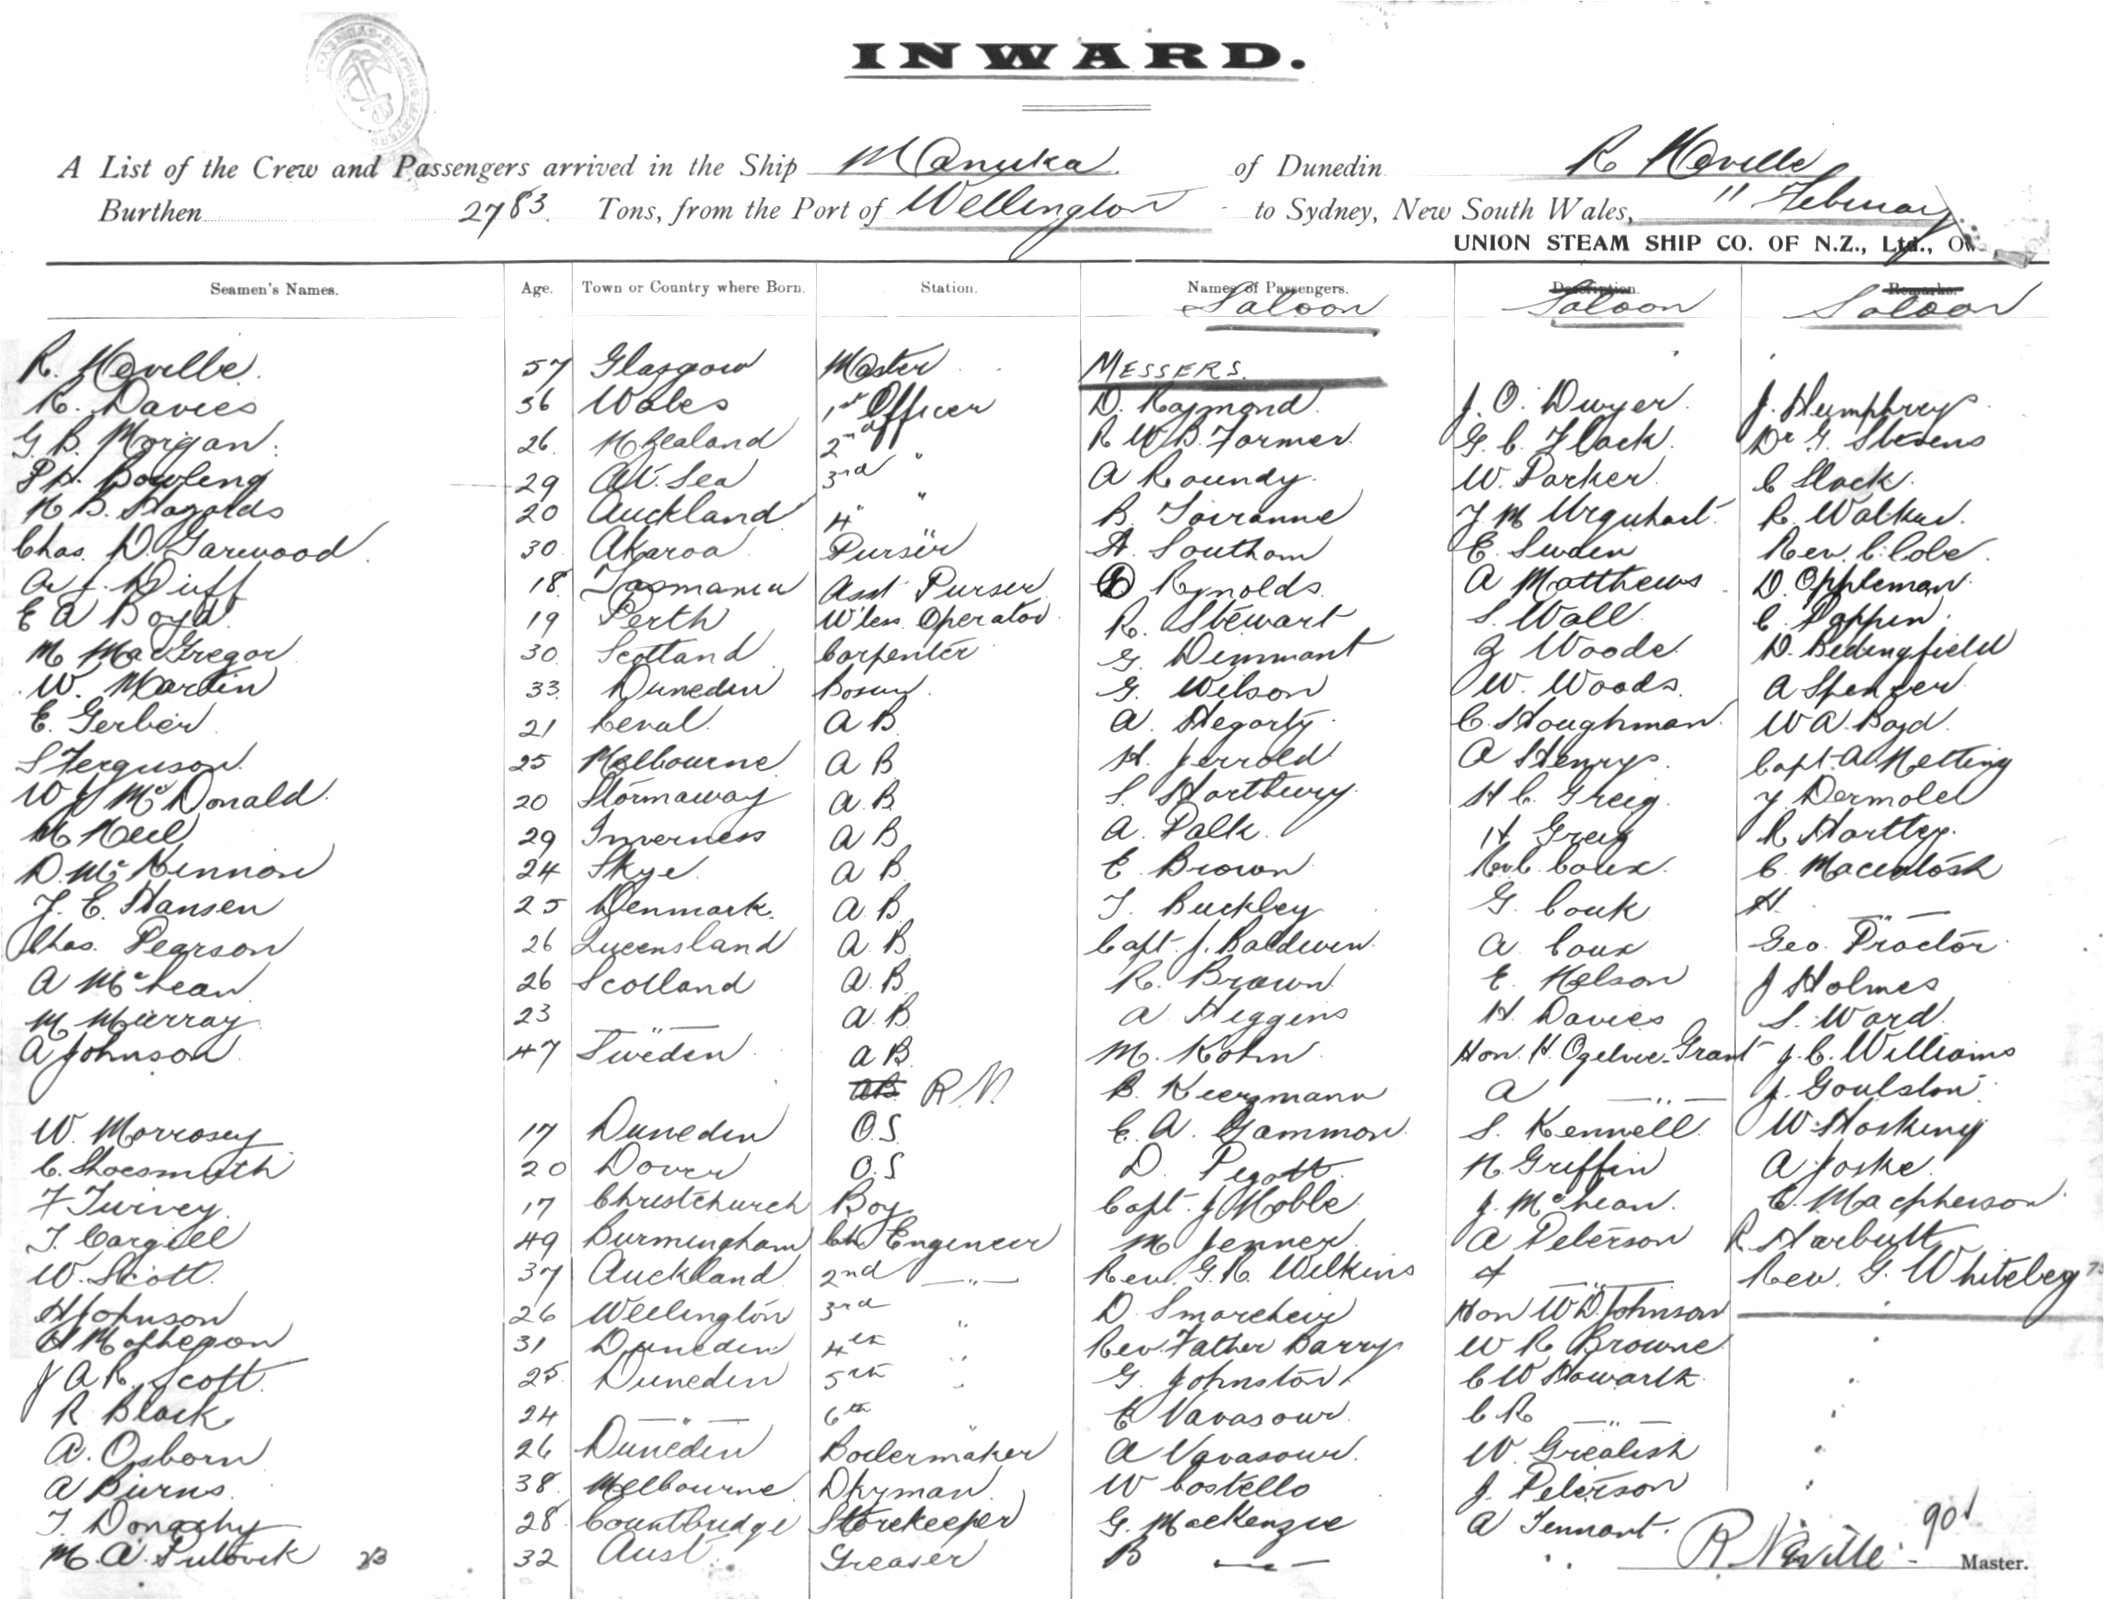 INWARD.
A List of the Crew and Passengers arrived in the Ship Manuka of Dunedin R Neville
Burthen 2783 Tons, from the Port of Wellington to Sydney, New South Wales, 11 February
UNION STEAM SHIP CO. OF N.Z., Ltd.,
Seamen's Names. Age. Town or Country where Born. Station. Names of Passengers. Description. Remarks.
Saloon Saloon Saloon
R. Neville 57 Glasgow Master MESSERS.
R. Davies 56 Wales 1st Officer D. Raymond J. O. Dwyer J. Humphreys
G. B. Morgan 26 N Zealand 2nd " R W B. Farmer G. C. Flack Dr G. Stevens
P H. Bowling 29 At Sea 3rd " A Roundy W. Parker C Slack
N B. 20 Auckland 4" B. J M Urquhart R. Walker
Chas. D. Garwood 30 Akaroa Purser A. Southam E. Rev. C. Cobe
A. J. Duff 18 Tasmania Asst Purser Rynolds A Matthews D. Oppleman
E A Boyd 19 Perth W'less Operator R. Stewart S. Wall C. Pappin
M MacGregor 30 Scotland Carpenter G. Dimmant Woods D. Bedingfield
W. Martin 33 Dunedin Bosun G. Wilson W. Woods A Spenzer
E. Gerber 21 Reval A B. A. Hegarty C. Houghman W A Boyd
S Ferguson 25 Melbourne A B H. Jerrold A Henrys Capt. A Netting
W J McDonald 20 Stornaway A. B. S. Hartbury H C. Greig J Dermoled
N Neil 29 Inverness A B A. Palk H Greig R Hartley
D. McKinnon 24 Skye A B. E Brown C. Macintosh
J. E. Hansen 25 Denmark A. B. T. Buckley G. H. — " —
Chas. Pearson 26 Queensland A. B. Capt. J. Baldwin A Geo. Proctor
A McLean 26 Scotland A. B. R. Brown E. Nelson J Holmes
M Murray 23 — " — A. B. A Higgins H. Davies S. Ward
A Johnson 47 Sweden A B. M. Kohn Hon. H. Ogilvie-Grant J. C. Williams
AB R.N. B. Keersmann A — " — J. Goulston
W. Morrosey 17 Dunedin O.S. C. A. Gammon S. Kennell W. Hosking
C. Shoesmith 20 Dover O.S D. Pegott N Griffin A Joske
F Turvey 17 Christchurch Boy Capt. J Noble J. McLean C. Macpherson
T. Cargill 49 Burmingham Ch. Engineer M Jenner A Peterson R Harbutt
W. Scott 37 Auckland 2nd — " — Rev. G. R. Wilkins F — " — Rev. G. Whiteley
H Johnson 26 Wellington 3rd " D. Hon W D. Johnson
31 Dunedin 4th " Rev. Father Barry W R Browne
J A R. Scott 25 Dunedin 5th " G. Johnston C W Howarth
R Black 24 — " — 6th " E Vavasour C R — " —
A. Osborn 26 Dunedin Boilermaker A Vavasour W. Grealish
A Burns 38 Melbourne Dkyman W Costello J. Peterson
T. Donachy 28 Coantbridge Storekeeper G. MacKenzie A Tennant. 90
M. A. 32 Aust Greaser B — " — R. Neville Master.